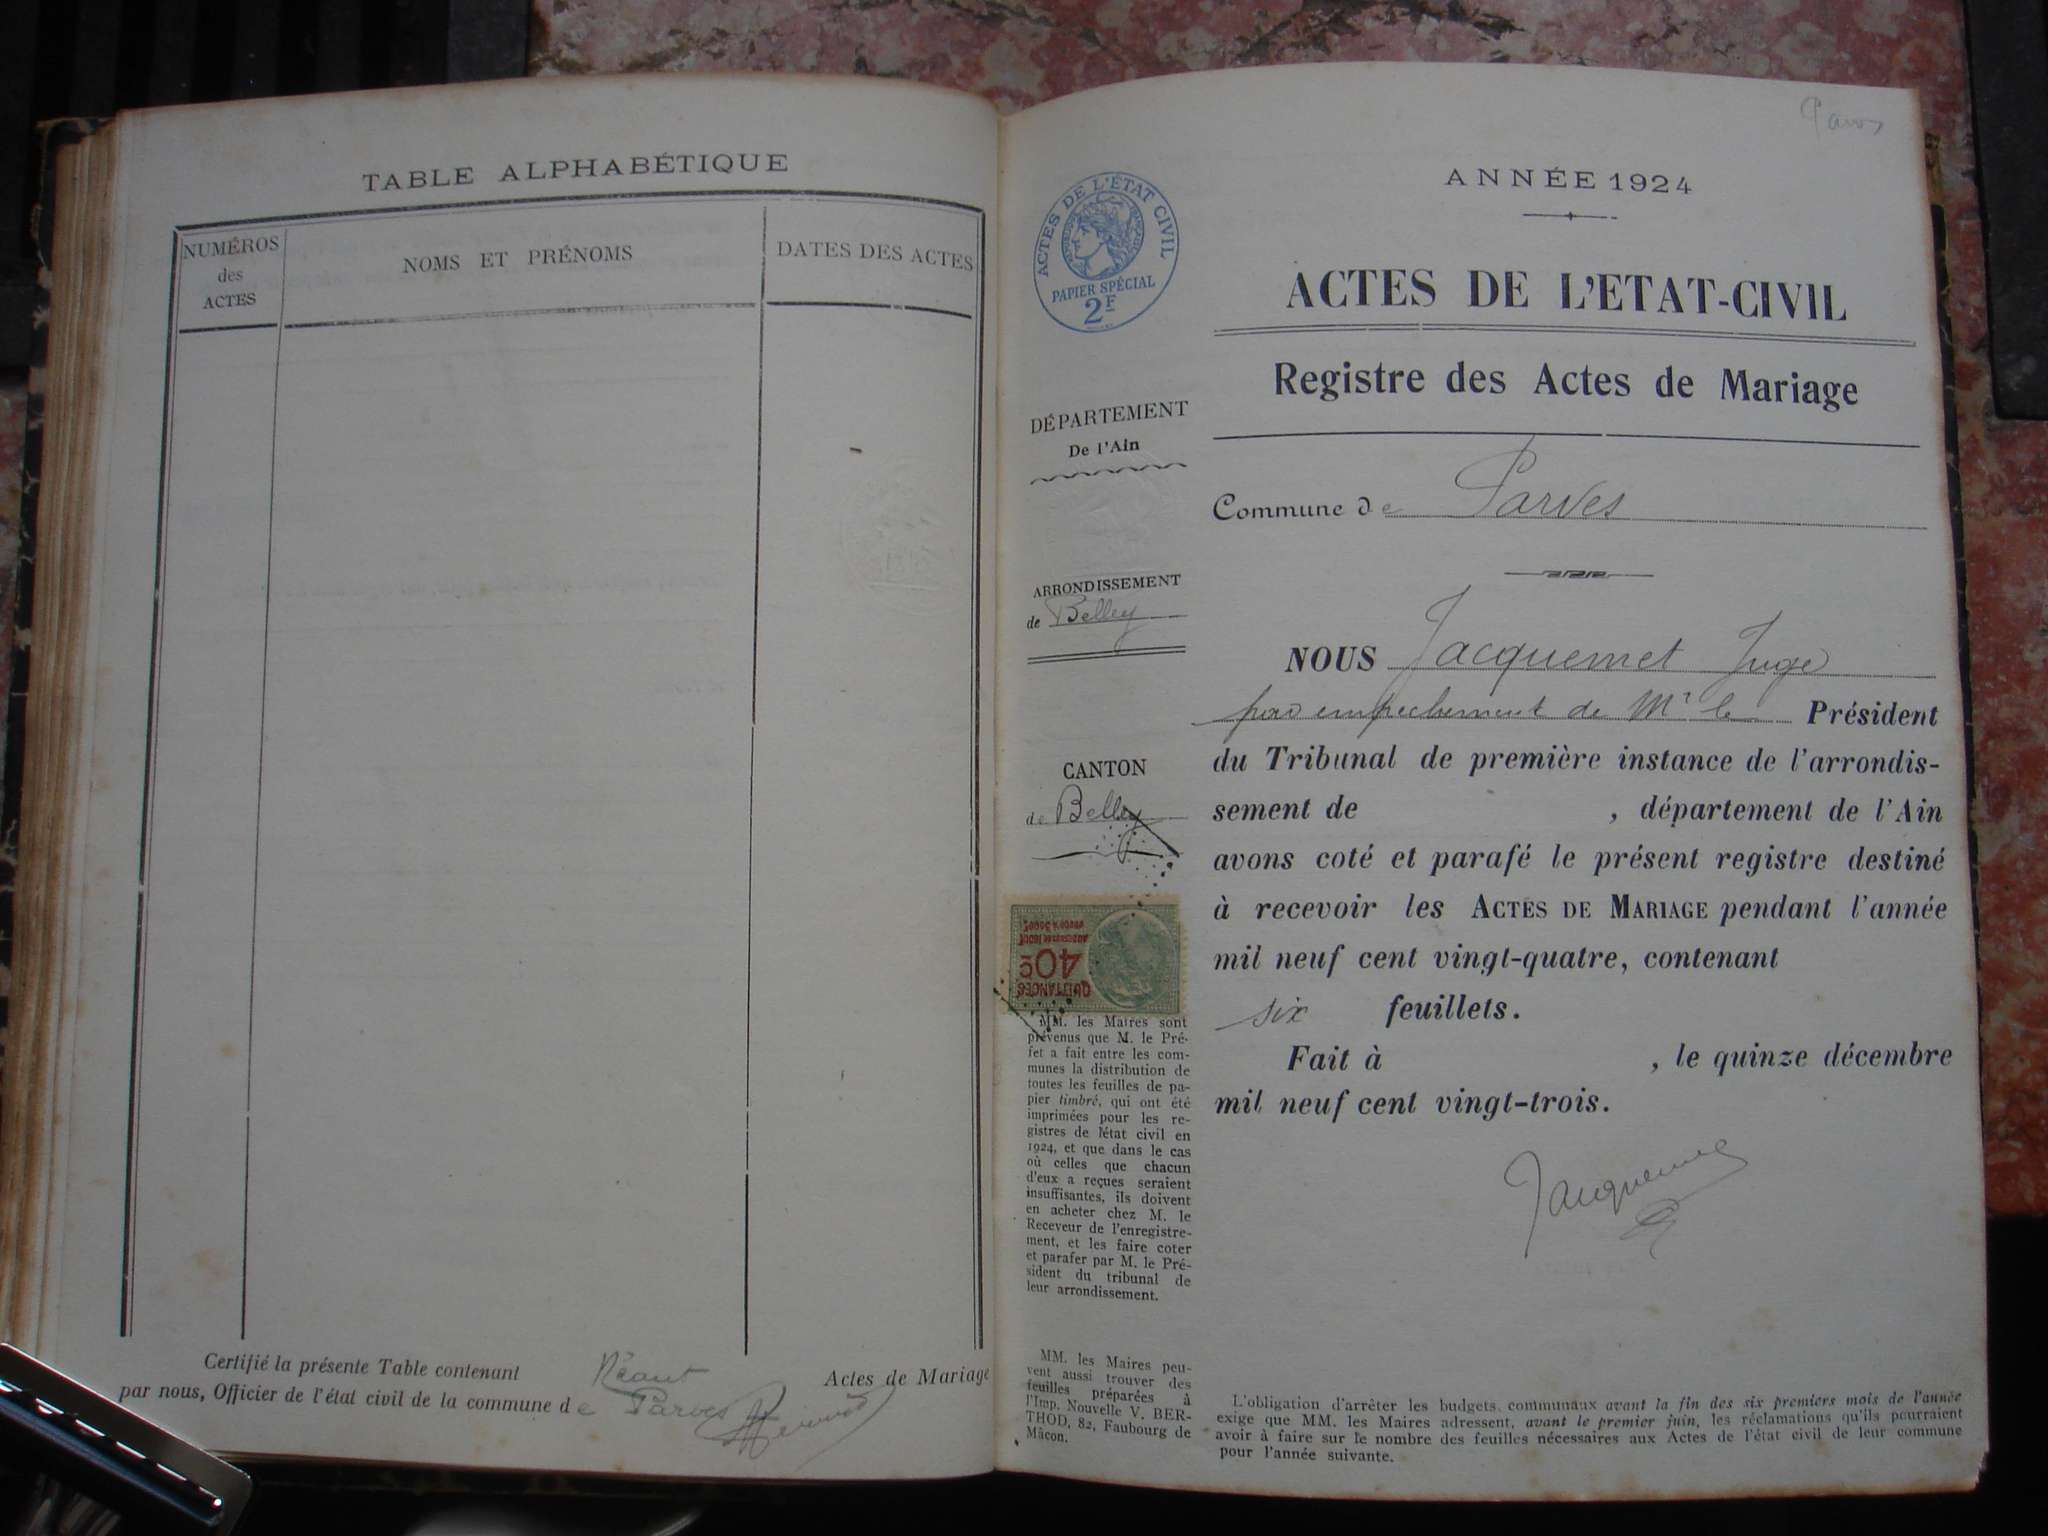 TABLE ALPHABÉTIQUE
NUMÉROS
des
ACTES
NOMS ET PRÉNOMS
DATES DES ACTES
Certifié la présente Table contenant Néant Actes de Mariage
par nous, Officier de l'état civil de la commune de Parves
ANNÉE 1924
ACTES DE L'ÉTAT CIVIL
RÉPUBLIQUE FRANÇAISE
PAPIER SPÉCIAL
2F
ACTES DE L'ETAT-CIVIL
Registre des Actes de Mariage
DÉPARTEMENT
De l'Ain
Commune de Parves
ARRONDISSEMENT
de Belley
CANTON
de Belley
NOUS Jacquemet Juge
par empechement de Mr le Président
du Tribunal de première instance de l'arrondis-
sement de , département de l'Ain
avons coté et parafé le présent registre destiné
à recevoir les ACTES DE MARIAGE pendant l'année
mil neuf cent vingt-quatre, contenant
six feuillets.
Fait à , le quinze décembre
mil neuf cent vingt-trois.
Jacquemet
QUITTANCES
40c
MM. les Maires sont
prévenus que M. le Pré-
fet a fait entre les com-
munes la distribution de
toutes les feuilles de pa-
pier timbré, qui ont été
imprimées pour les re-
gistres de l'état civil en
1924, et que dans le cas
où celles que chacun
d'eux a reçues seraient
insuffisantes, ils doivent
en acheter chez M. le
Receveur de l'enregistre-
ment, et les faire coter
et parafer par M. le Pré-
sident du tribunal de
leur arrondissement.
MM. les Maires peu-
vent aussi trouver des
feuilles préparées à
l'Imp. Nouvelle V. BER-
THOD, 82, Faubourg de
Mâcon.
L'obligation d'arrêter les budgets communaux avant la fin des six premiers mois de l'année
exige que MM. les Maires adressent, avant le premier juin, les réclamations qu'ils pourraient
avoir à faire sur le nombre des feuilles nécessaires aux Actes de l'état civil de leur commune
pour l'année suivante.